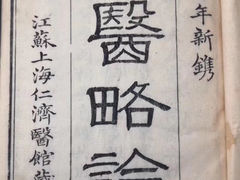 年新鐫
醫略論
江蘇上海仁濟醫館藏